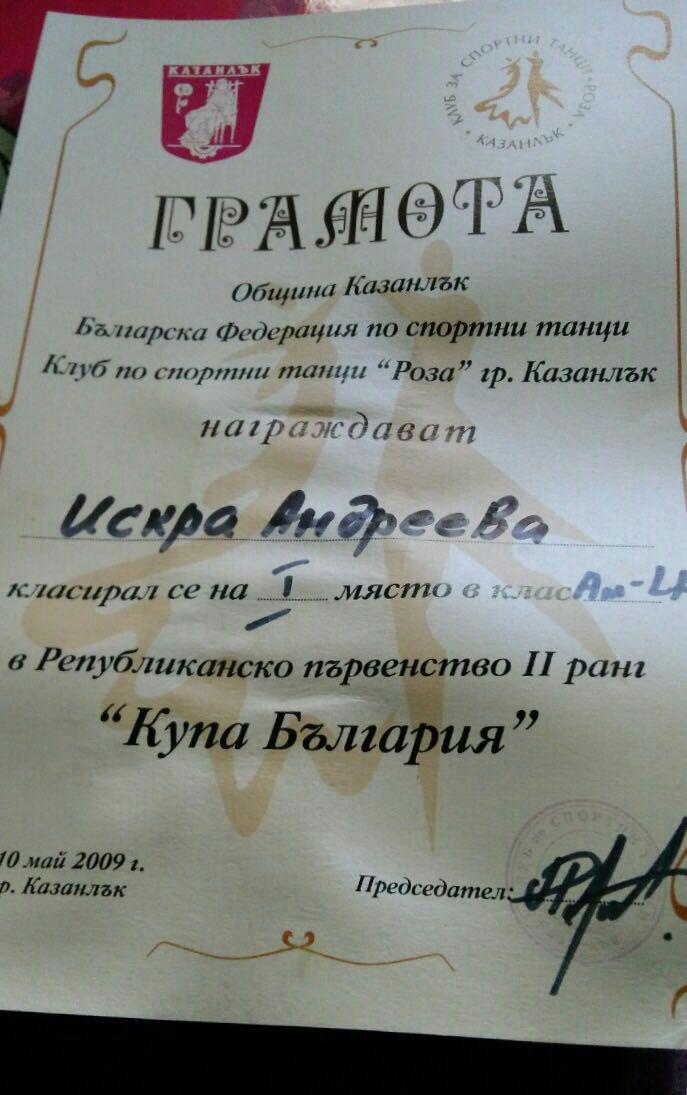 КАЗАНЛЪК
КЛУБ ЗА СПОРТНИ ТАНЦИ • РОЗА • КАЗАНЛЪК •
ГРАМОТА
Община Казанлък
Българска Федерация по спортни танци
Клуб по спортни танци “Роза” гр. Казанлък
награждават
Искра Андреева
класирал се на I място в клас Am-LA
в Републиканско първенство II ранг
“Купа България”
10 май 2009 г.
р. Казанлък
Председател: